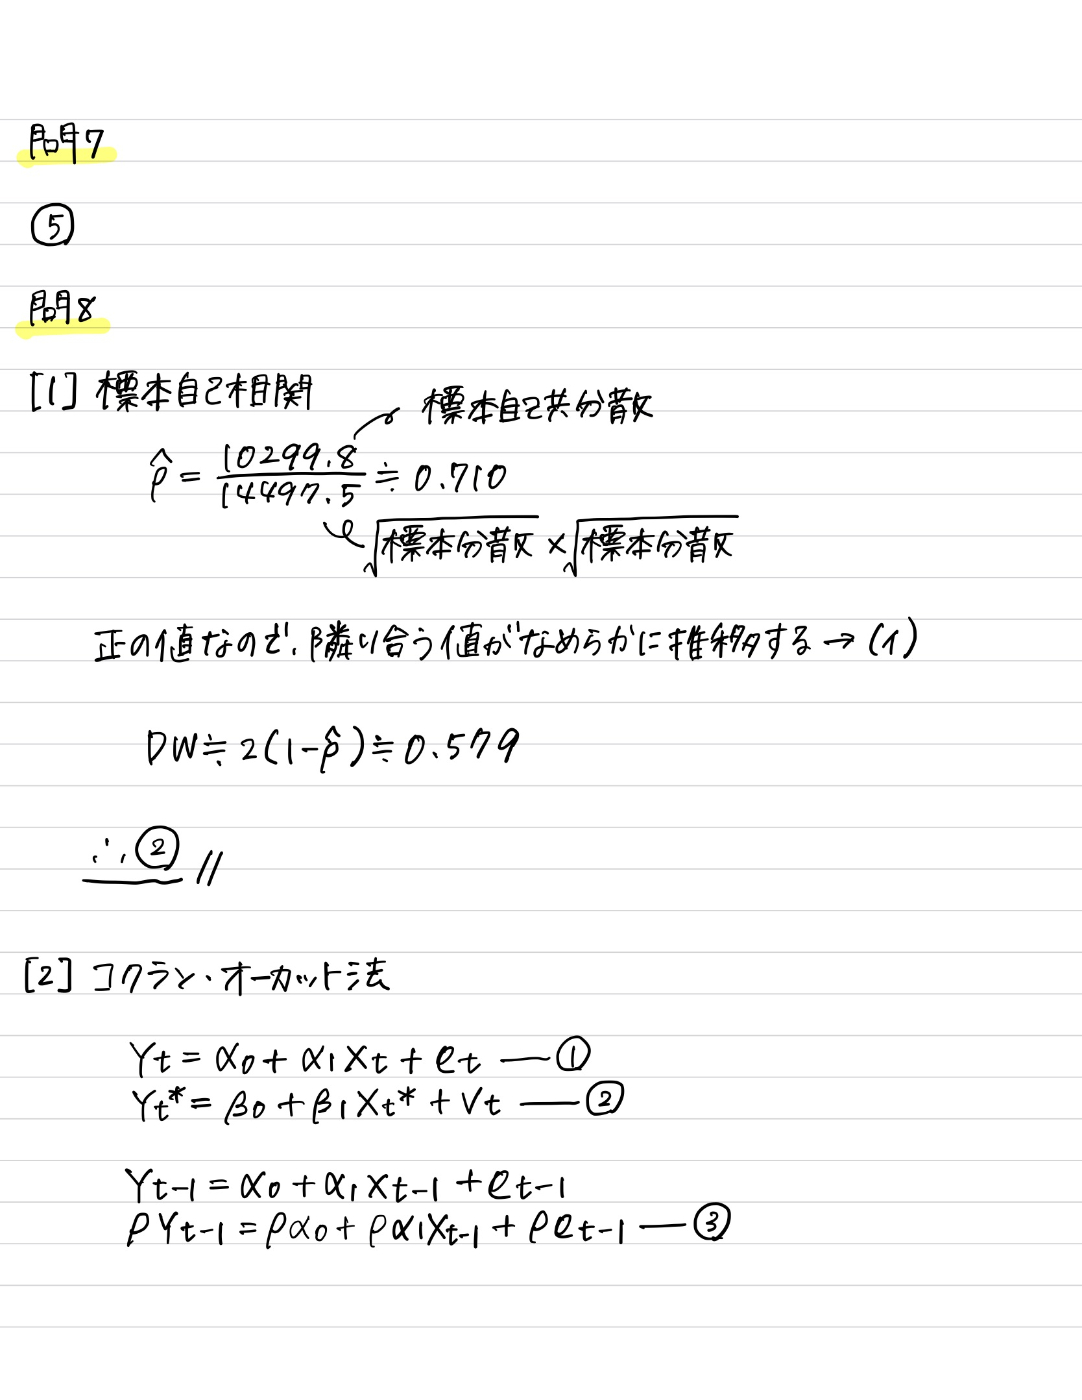 問7
⑤
問8
[1] 標本自己相関
標本自己共分散
ρ̂ = 10299.8 / 14497.5 ≒ 0.710
√標本分散 × √標本分散
正の値なので、隣り合う値がなめらかに推移する → (イ)
DW ≒ 2(1-ρ̂) ≒ 0.579
∴ ② //
[2] コクラン・オーカット法
Yt = α0 + α1Xt + et ― ①
Yt* = β0 + β1Xt* + Vt ― ②
Yt-1 = α0 + α1Xt-1 + et-1
ρYt-1 = ρα0 + ρα1Xt-1 + ρet-1 ― ③